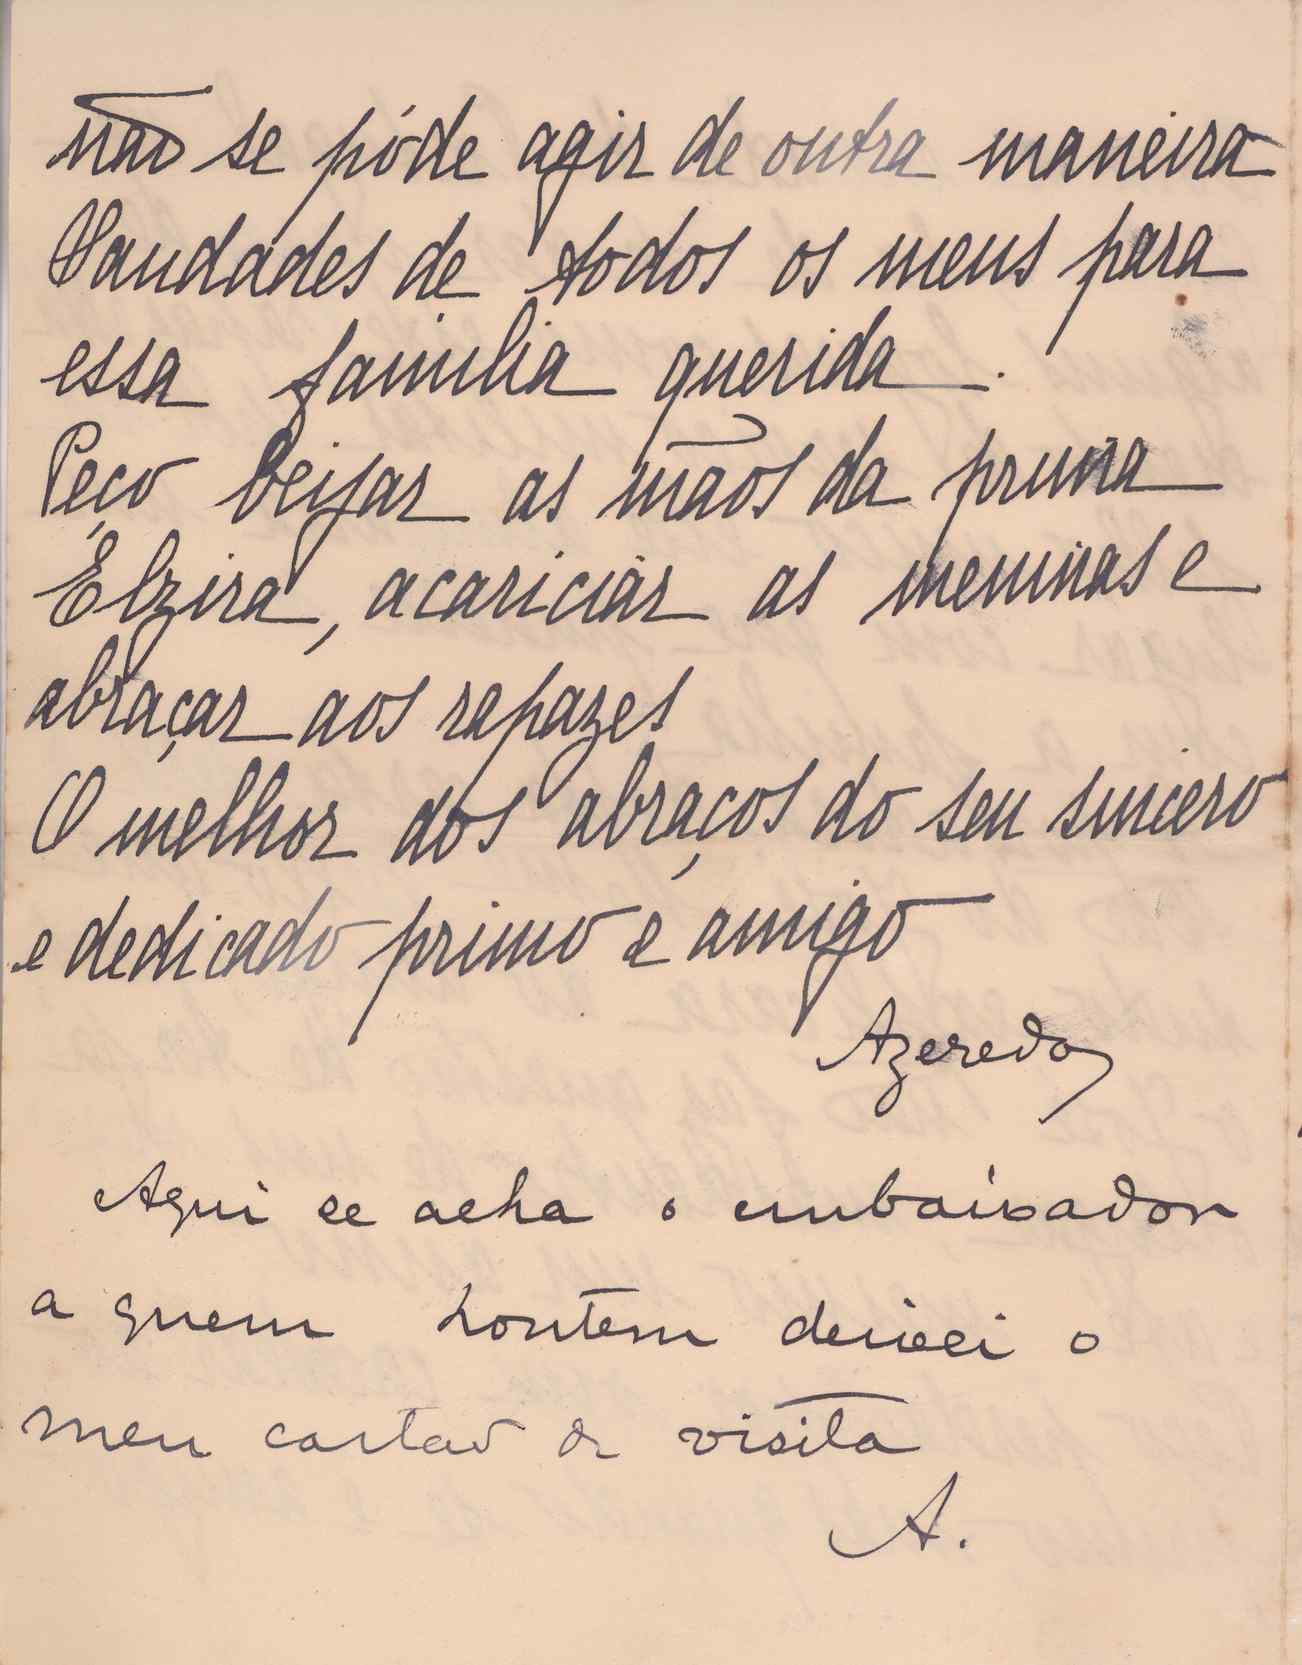 não se póde agir de outra maneira
Saudades de todos os meus para
essa familia querida.
Peço beijar as mãos da prima
Elzira, acariciar as meninas e
abraçar aos rapazes
O melhor dos abraços do seu sincero
e dedicado primo e amigo
Azeredo
Aqui se acha o embaixador
a quem hontem deixei o
meu cartão de visita
A.